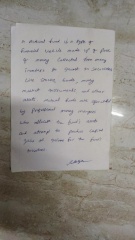 A mutual fund is a type of
financial vehicle made up of a pool
of money collected from many
investors to invest in securities
like stocks, bonds, money
market instruments and other
assets. mutual funds are operated
by professional money managers
who allocate the fund's assets
and attempt to produce capital
gains or income for the fund's
investors